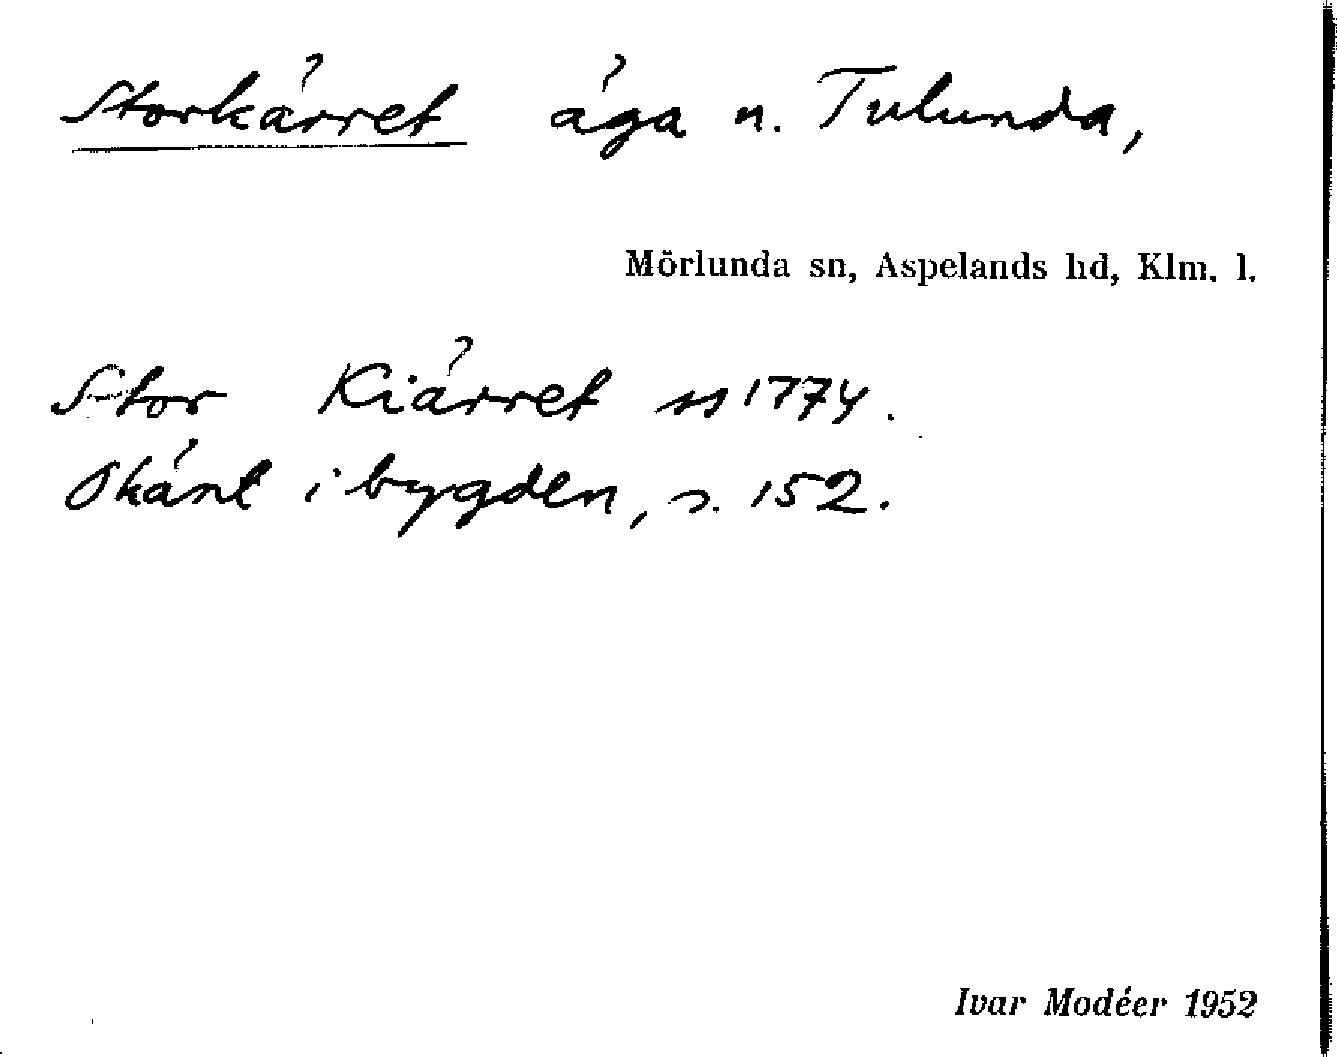 Storkärret äga n. Tulunda,
Mörlunda sn, Aspelands hd, Klm. l.
Stor Kiärret ss 1774.
Okänt i bygden, s. 152.
Ivar Modéer 1952